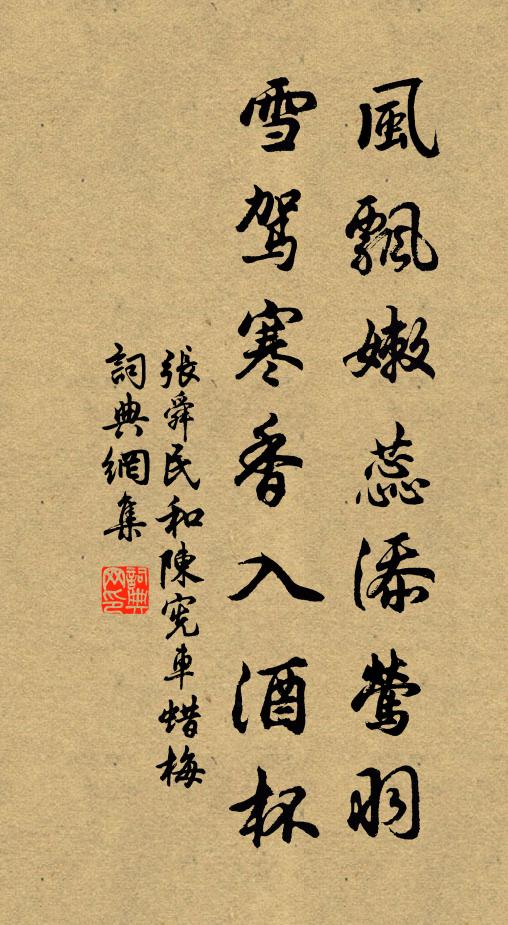 風飄嫩蕊添鶯羽
雪駕寒香入酒杯
張舜民和陳憲車蜡梅
詞典網集
詞典网印